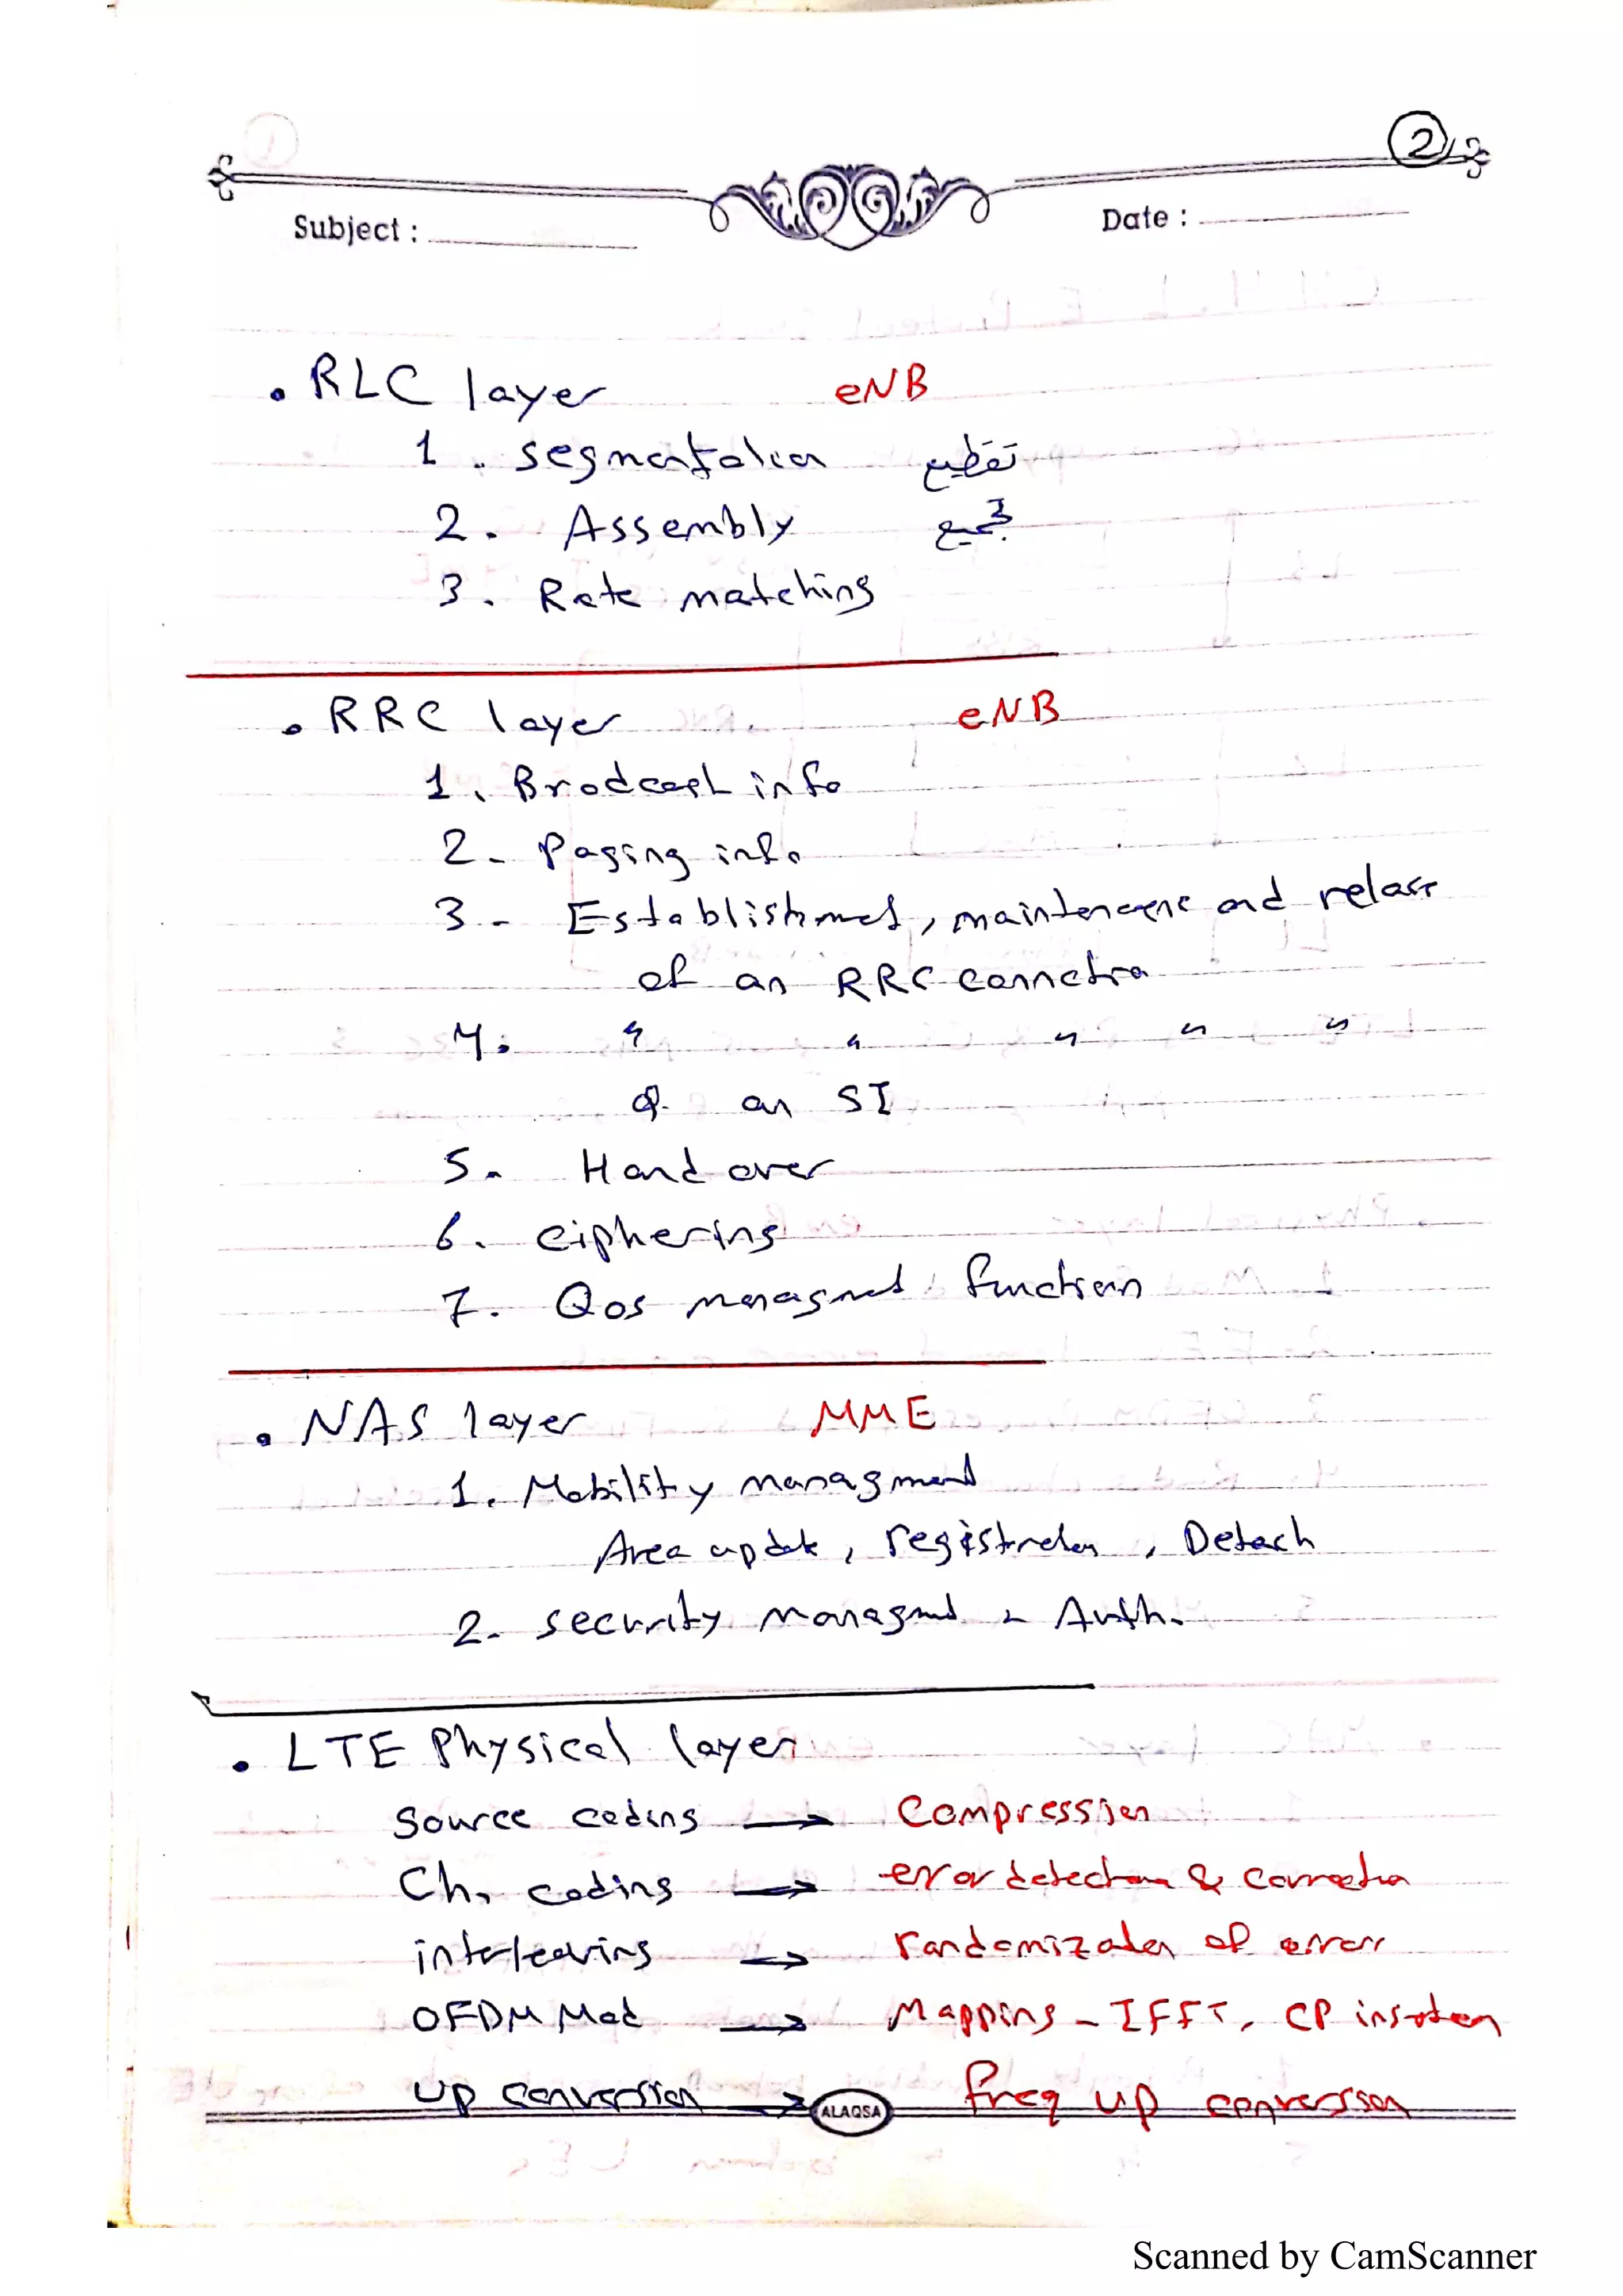 2
Subject :
Date :
• RLC layer eNB
1. segmentation تقطيع
2. Assembly تجميع
3. Rate matching
• RRC layer eNB
1. Brodcast info
2- Paging info
3- Establishment, maintenance and relase
of an RRC connection
4. " " " " "
of an SI
5. Hand over
6. ciphering
7. Qos managment function
• NAS layer MME
1. Mobility managment
Area update, registration, Detach
2- security managment Auth.
• LTE Physical layer
Source coding → Compression
Ch. coding → error detection & correction
interleaving → randomization of error
OFDM Mod → Mapping - IFFT, CP insertion
up conversion → freq up conversion
ALAQSA
Scanned by CamScanner